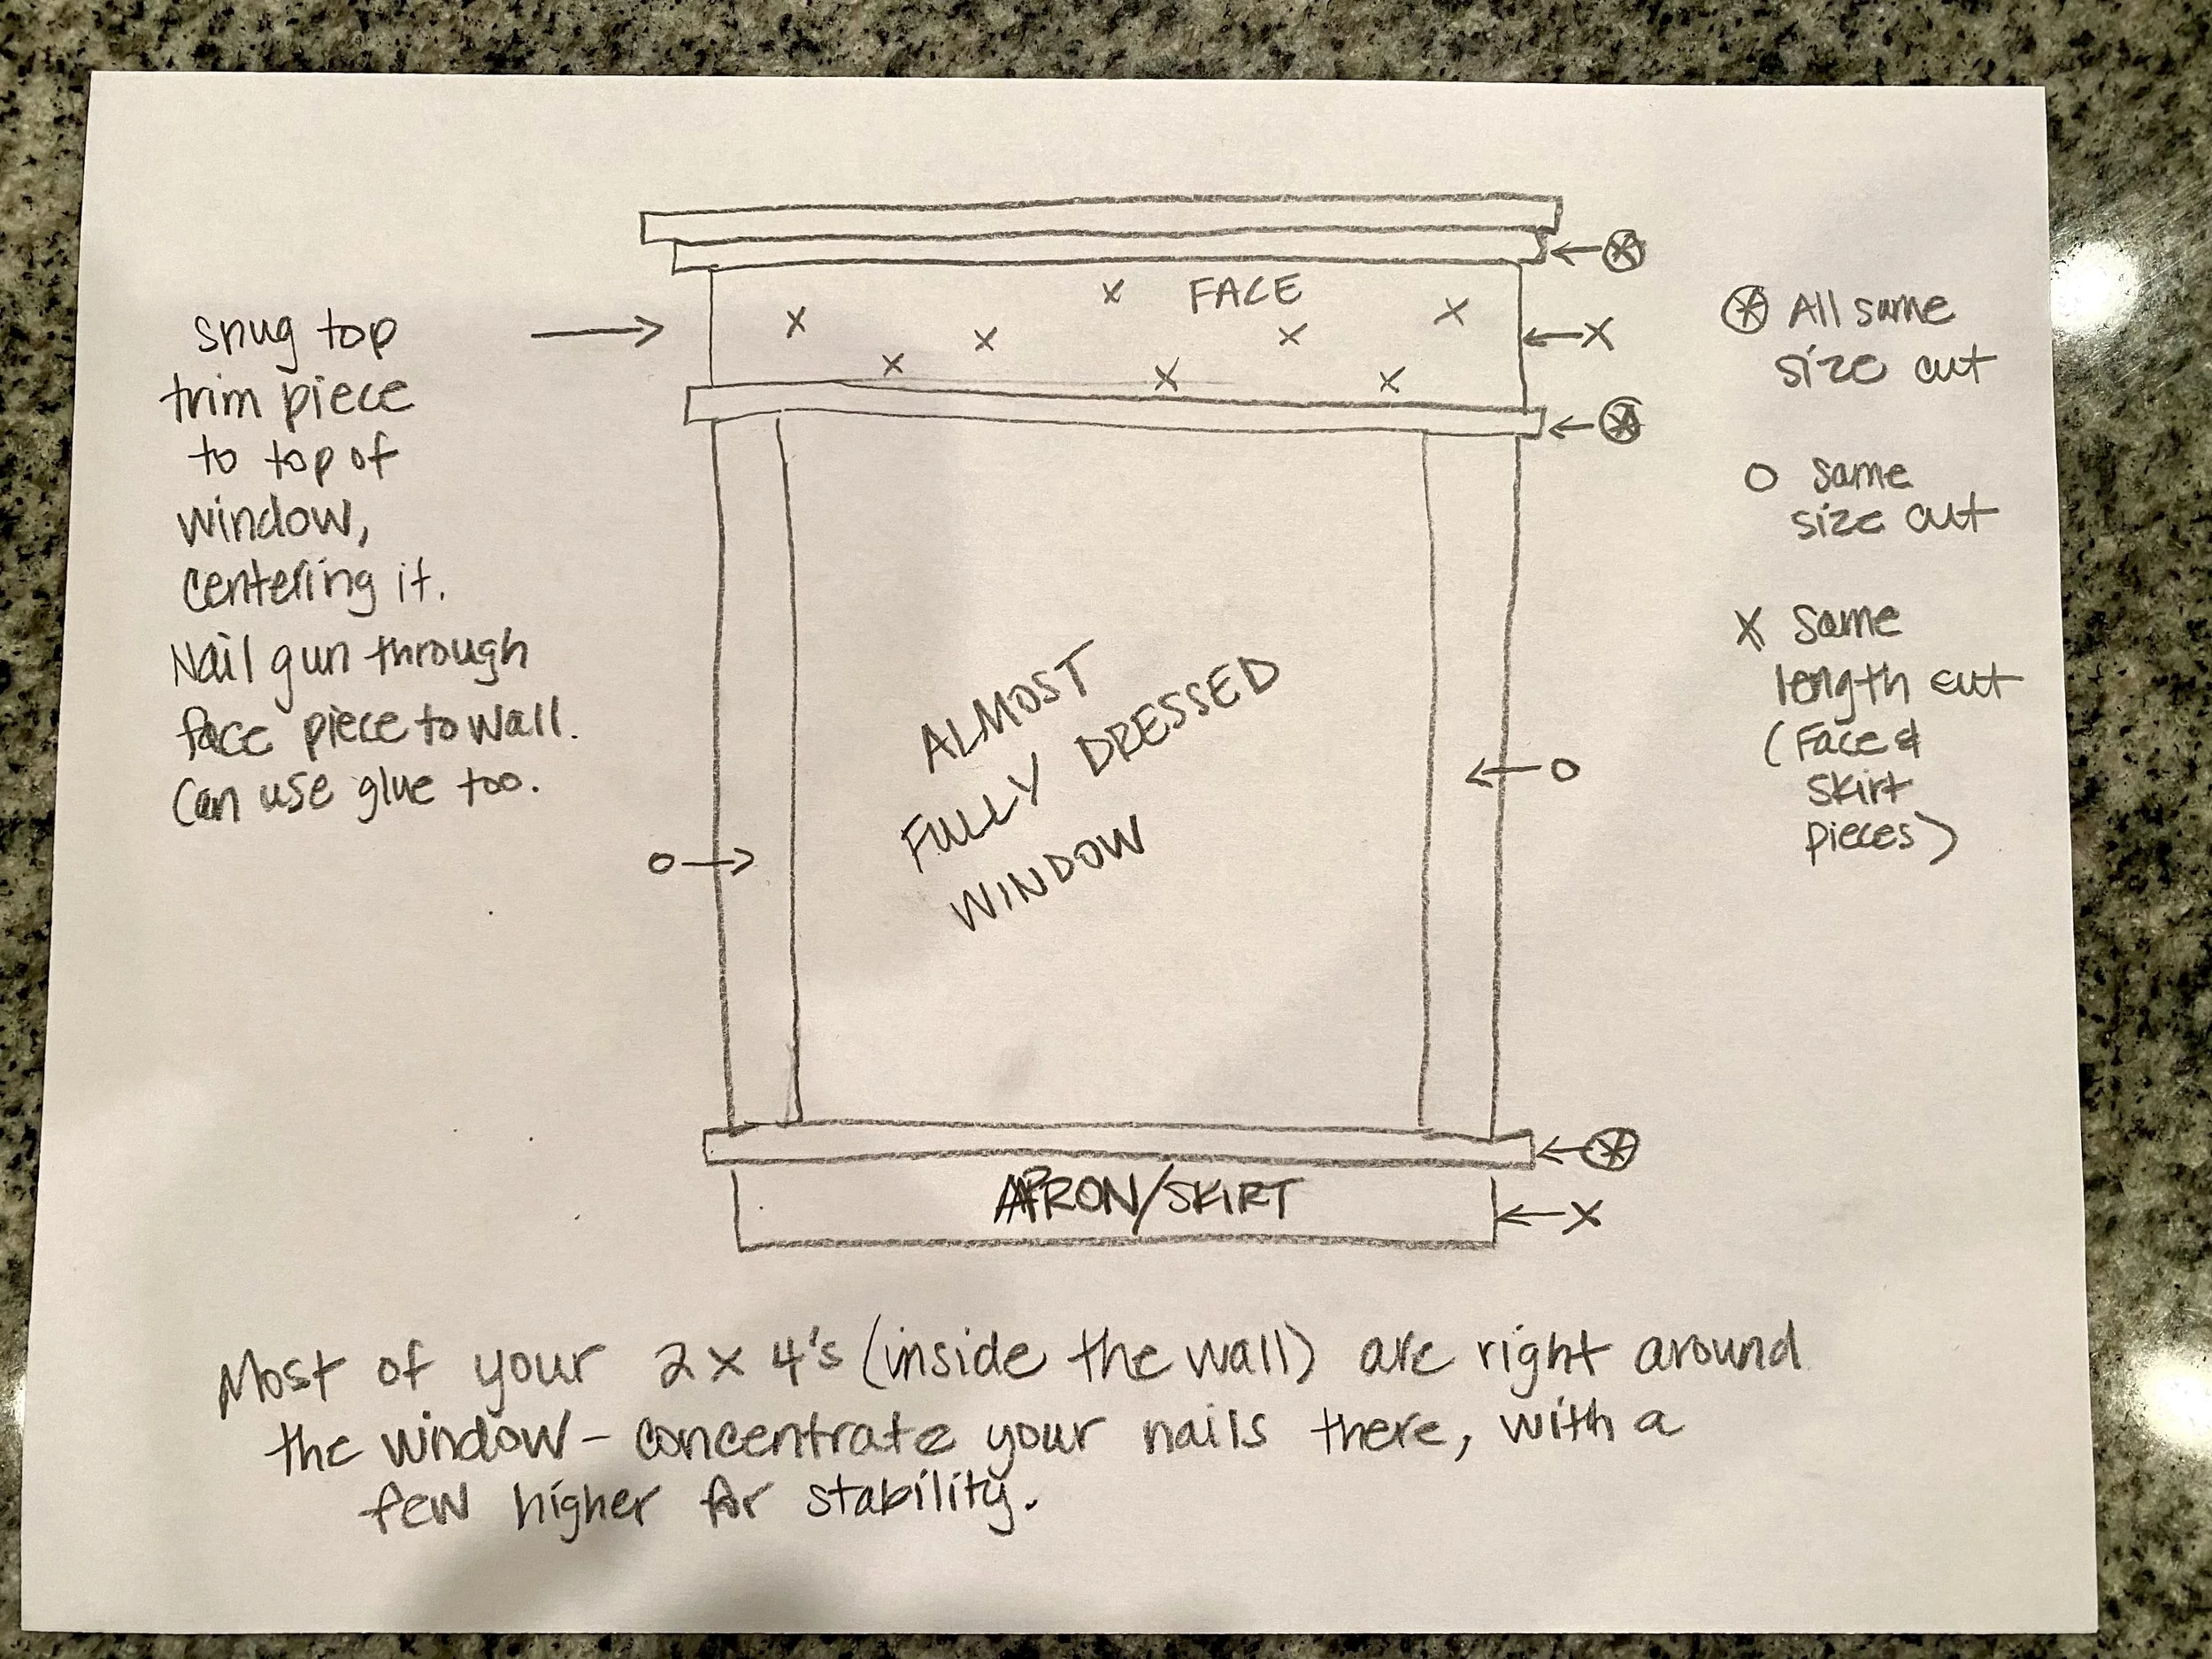 snug top
trim piece
to top of
window,
centering it.
Nail gun through
face piece to wall.
Can use glue too.
FACE
X
X
X
X
X
X
X
X
X
O
O
X
ALMOST
FULLY DRESSED
WINDOW
APRON/SKIRT
All same
size cut
O same
size cut
X Same
length cut
(Face &
skirt
pieces)
Most of your 2x4's (inside the wall) are right around
the window - concentrate your nails there, with a
few higher for stability.